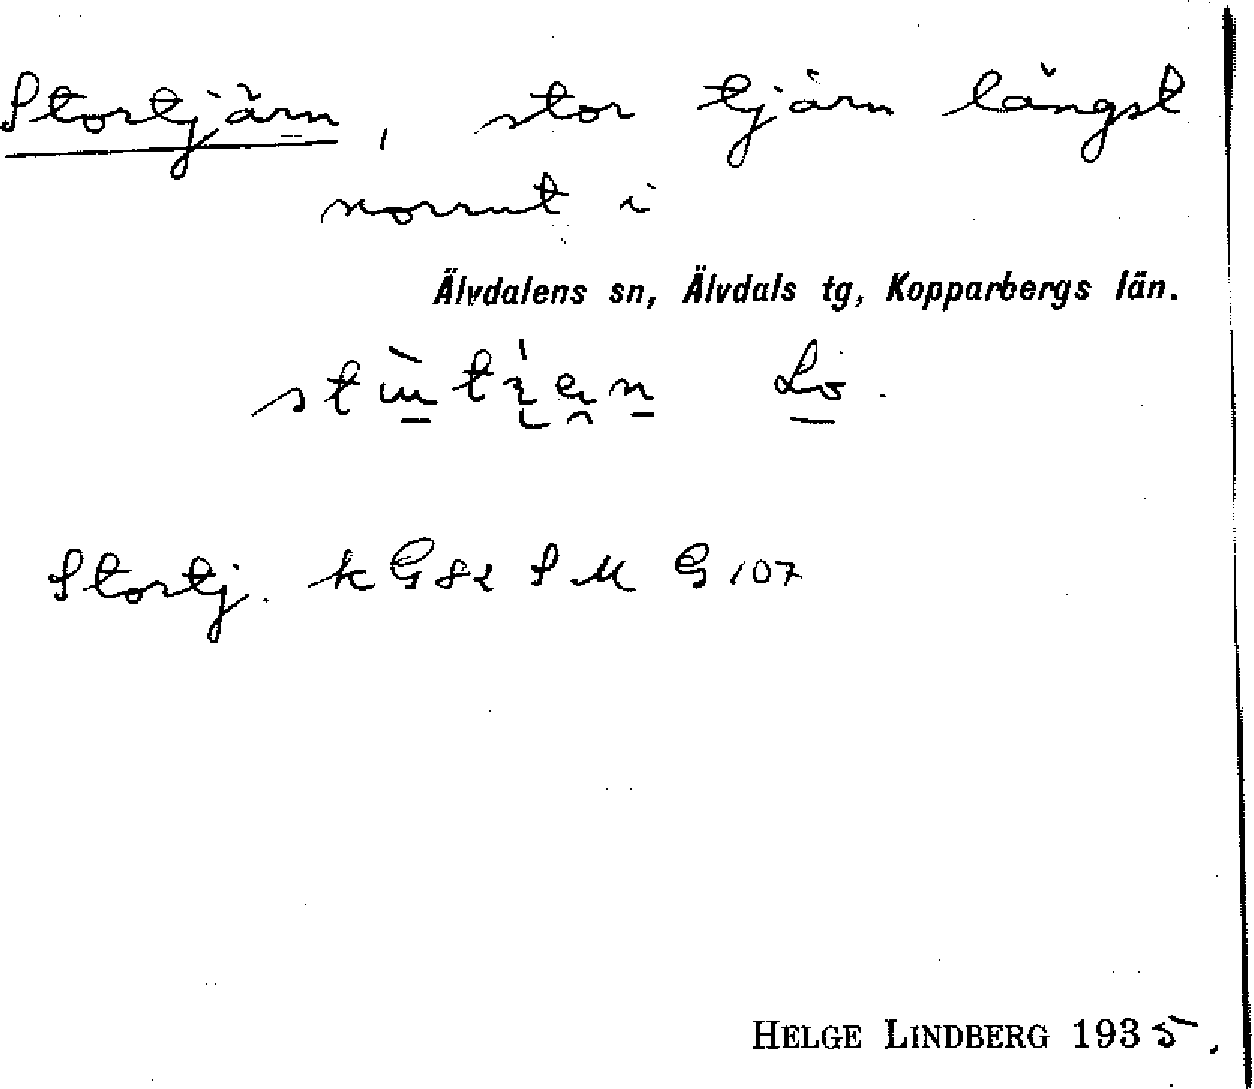 Stortjärn, stor tjärn längst
norrut i
Älvdalens sn, Älvdals tg, Kopparbergs län.
Lö.
Stortj. k G82 S M G107
HELGE LINDBERG 1935.